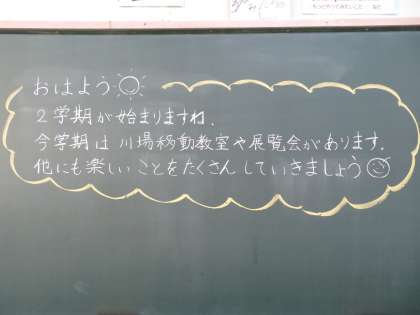 おはよう
2学期が始まりますね.
今学期は川場移動教室や展覧会があります.
他にも楽しいことをたくさんしていきましょう